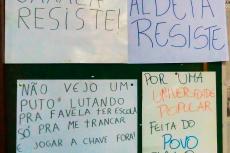 RESISTE!
ALDEIA
RESISTE
"NÃO VEJO UM
PUTO" LUTANDO
PRA FAVELA TER ESCOLA
SÓ PRA ME TRANCAR
E JOGAR A CHAVE FORA!
POR "UMA
UNIVERSIDADE
POPULAR
FEITA DO
POVO